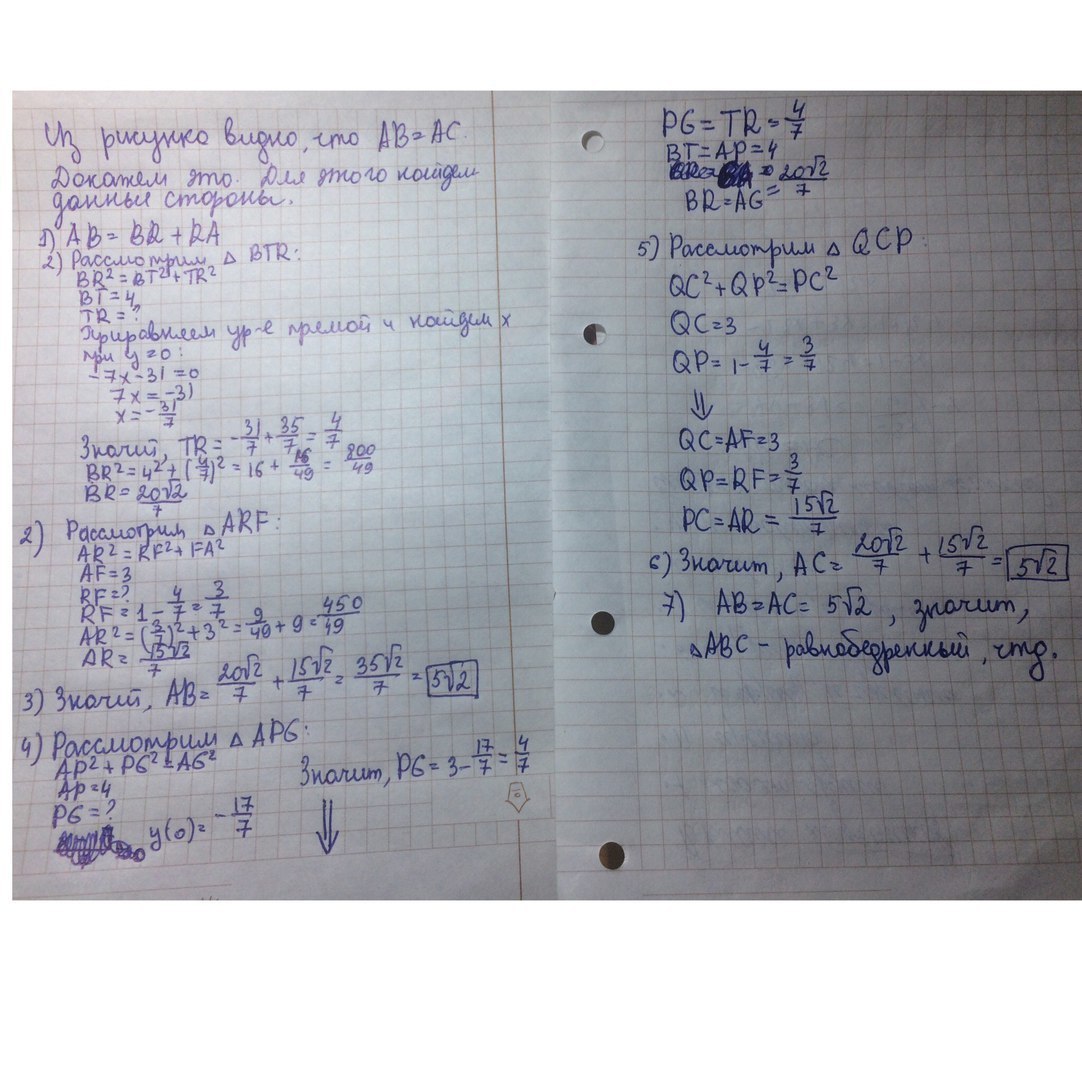 Из рисунка видно, что AB = AC.
Докажем это. Для этого найдем
данные стороны.
1) AB = BR + RA
2) Рассмотрим △ BTR:
BR² = BT² + TR²
BT = 4
TR = ?
Приравняем ур-е прямой и найдем x
при y = 0:
-7x - 31 = 0
7x = -31
x = -31/7
Значит, TR = -31/7 + 35/7 = 4/7
BR² = 4² + (4/7)² = 16 + 16/49 = 800/49
BR = 20√2/7
2) Рассмотрим △ ARF:
AR² = RF² + FA²
AF = 3
RF = ?
RF = 1 - 4/7 = 3/7
AR² = (3/7)² + 3² = 9/49 + 9 = 450/49
AR = 15√2/7
3) Значит, AB = 20√2/7 + 15√2/7 = 35√2/7 = 5√2
4) Рассмотрим △ APG:
AP² + PG² = AG²
AP = 4
PG = ?
y(0) = -17/7
Значит, PG = 3 - 17/7 = 4/7
⇓
PG = TR = 4/7
BT = AP = 4
BR = AG = 20√2/7
5) Рассмотрим △ QCP:
QC² + QP² = PC²
QC = 3
QP = 1 - 4/7 = 3/7
⇓
QC = AF = 3
QP = RF = 3/7
PC = AR = 15√2/7
6) Значит, AC = 20√2/7 + 15√2/7 = 5√2
7) AB = AC = 5√2, значит,
△ABC - равнобедренный, чтд.